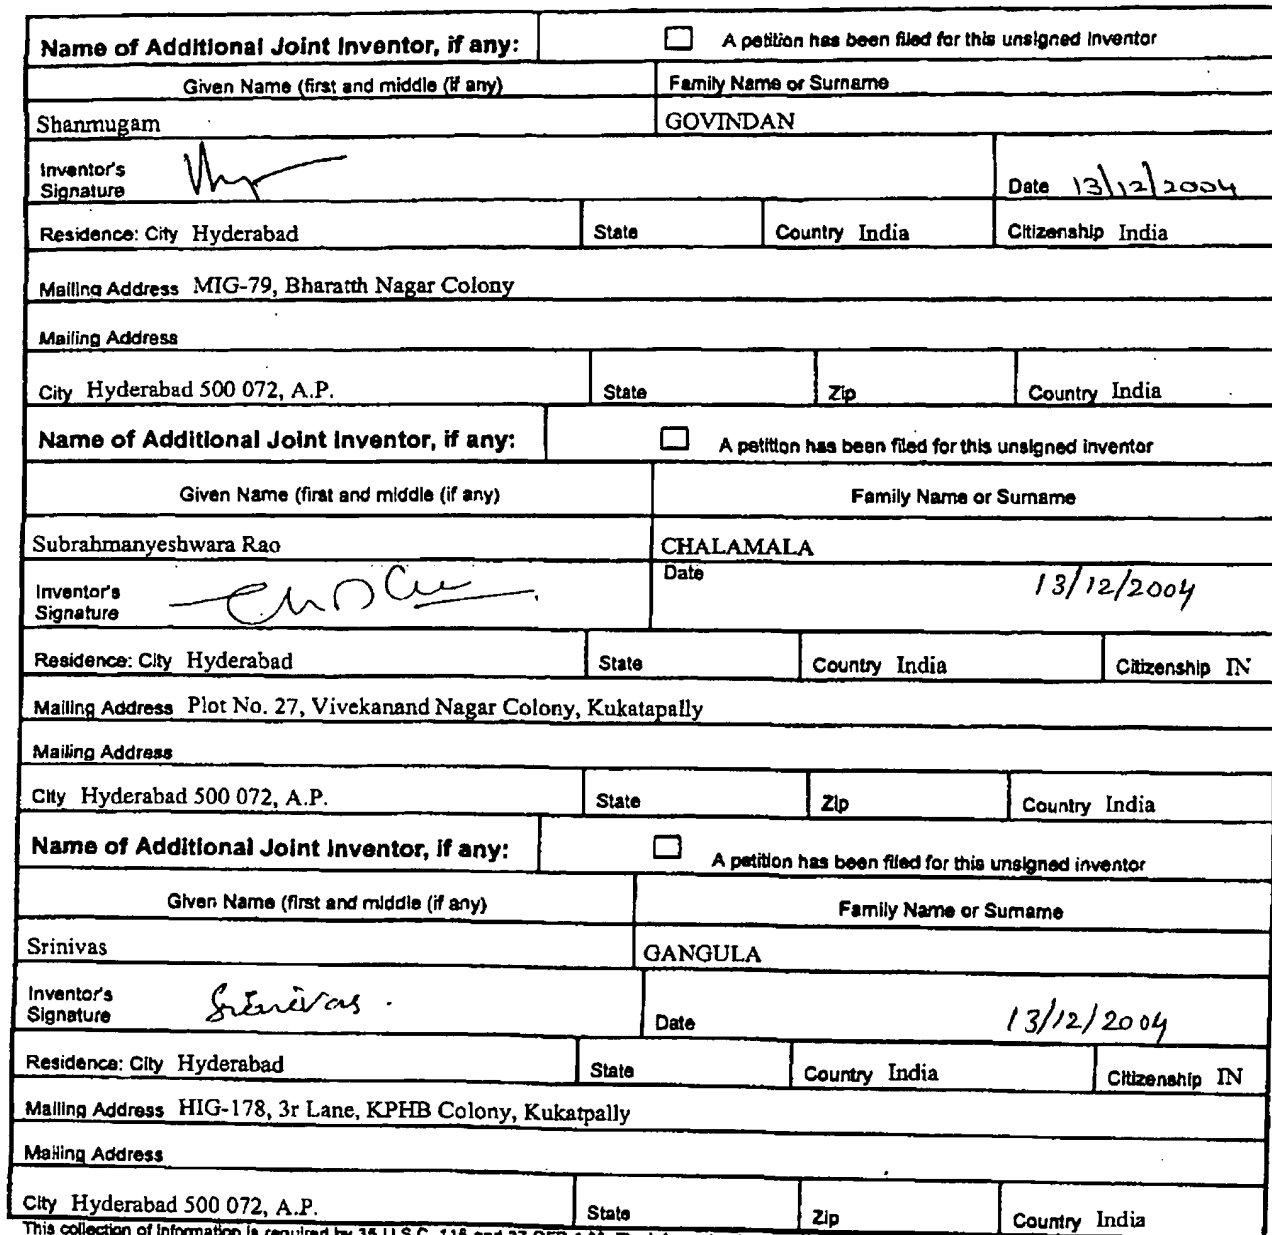 Name of Additional Joint Inventor, if any: ☐ A petition has been filed for this unsigned inventor
Given Name (first and middle (if any) Family Name or Surname
Shanmugam GOVINDAN
Inventor's
Signature Date 13/12/2004
Residence: City Hyderabad State Country India Citizenship India
Mailing Address MIG-79, Bharatth Nagar Colony
Mailing Address
City Hyderabad 500 072, A.P. State Zip Country India
Name of Additional Joint Inventor, if any: ☐ A petition has been filed for this unsigned inventor
Given Name (first and middle (if any) Family Name or Surname
Subrahmanyeshwara Rao CHALAMALA
Inventor's
Signature Date 13/12/2004
Residence: City Hyderabad State Country India Citizenship IN
Mailing Address Plot No. 27, Vivekanand Nagar Colony, Kukatapally
Mailing Address
City Hyderabad 500 072, A.P. State Zip Country India
Name of Additional Joint Inventor, if any: ☐ A petition has been filed for this unsigned inventor
Given Name (first and middle (if any) Family Name or Surname
Srinivas GANGULA
Inventor's
Signature Srinivas. Date 13/12/2004
Residence: City Hyderabad State Country India Citizenship IN
Mailing Address HIG-178, 3r Lane, KPHB Colony, Kukatpally
Mailing Address
City Hyderabad 500 072, A.P. State Zip Country India
This collection of information is required by 35 U.S.C.